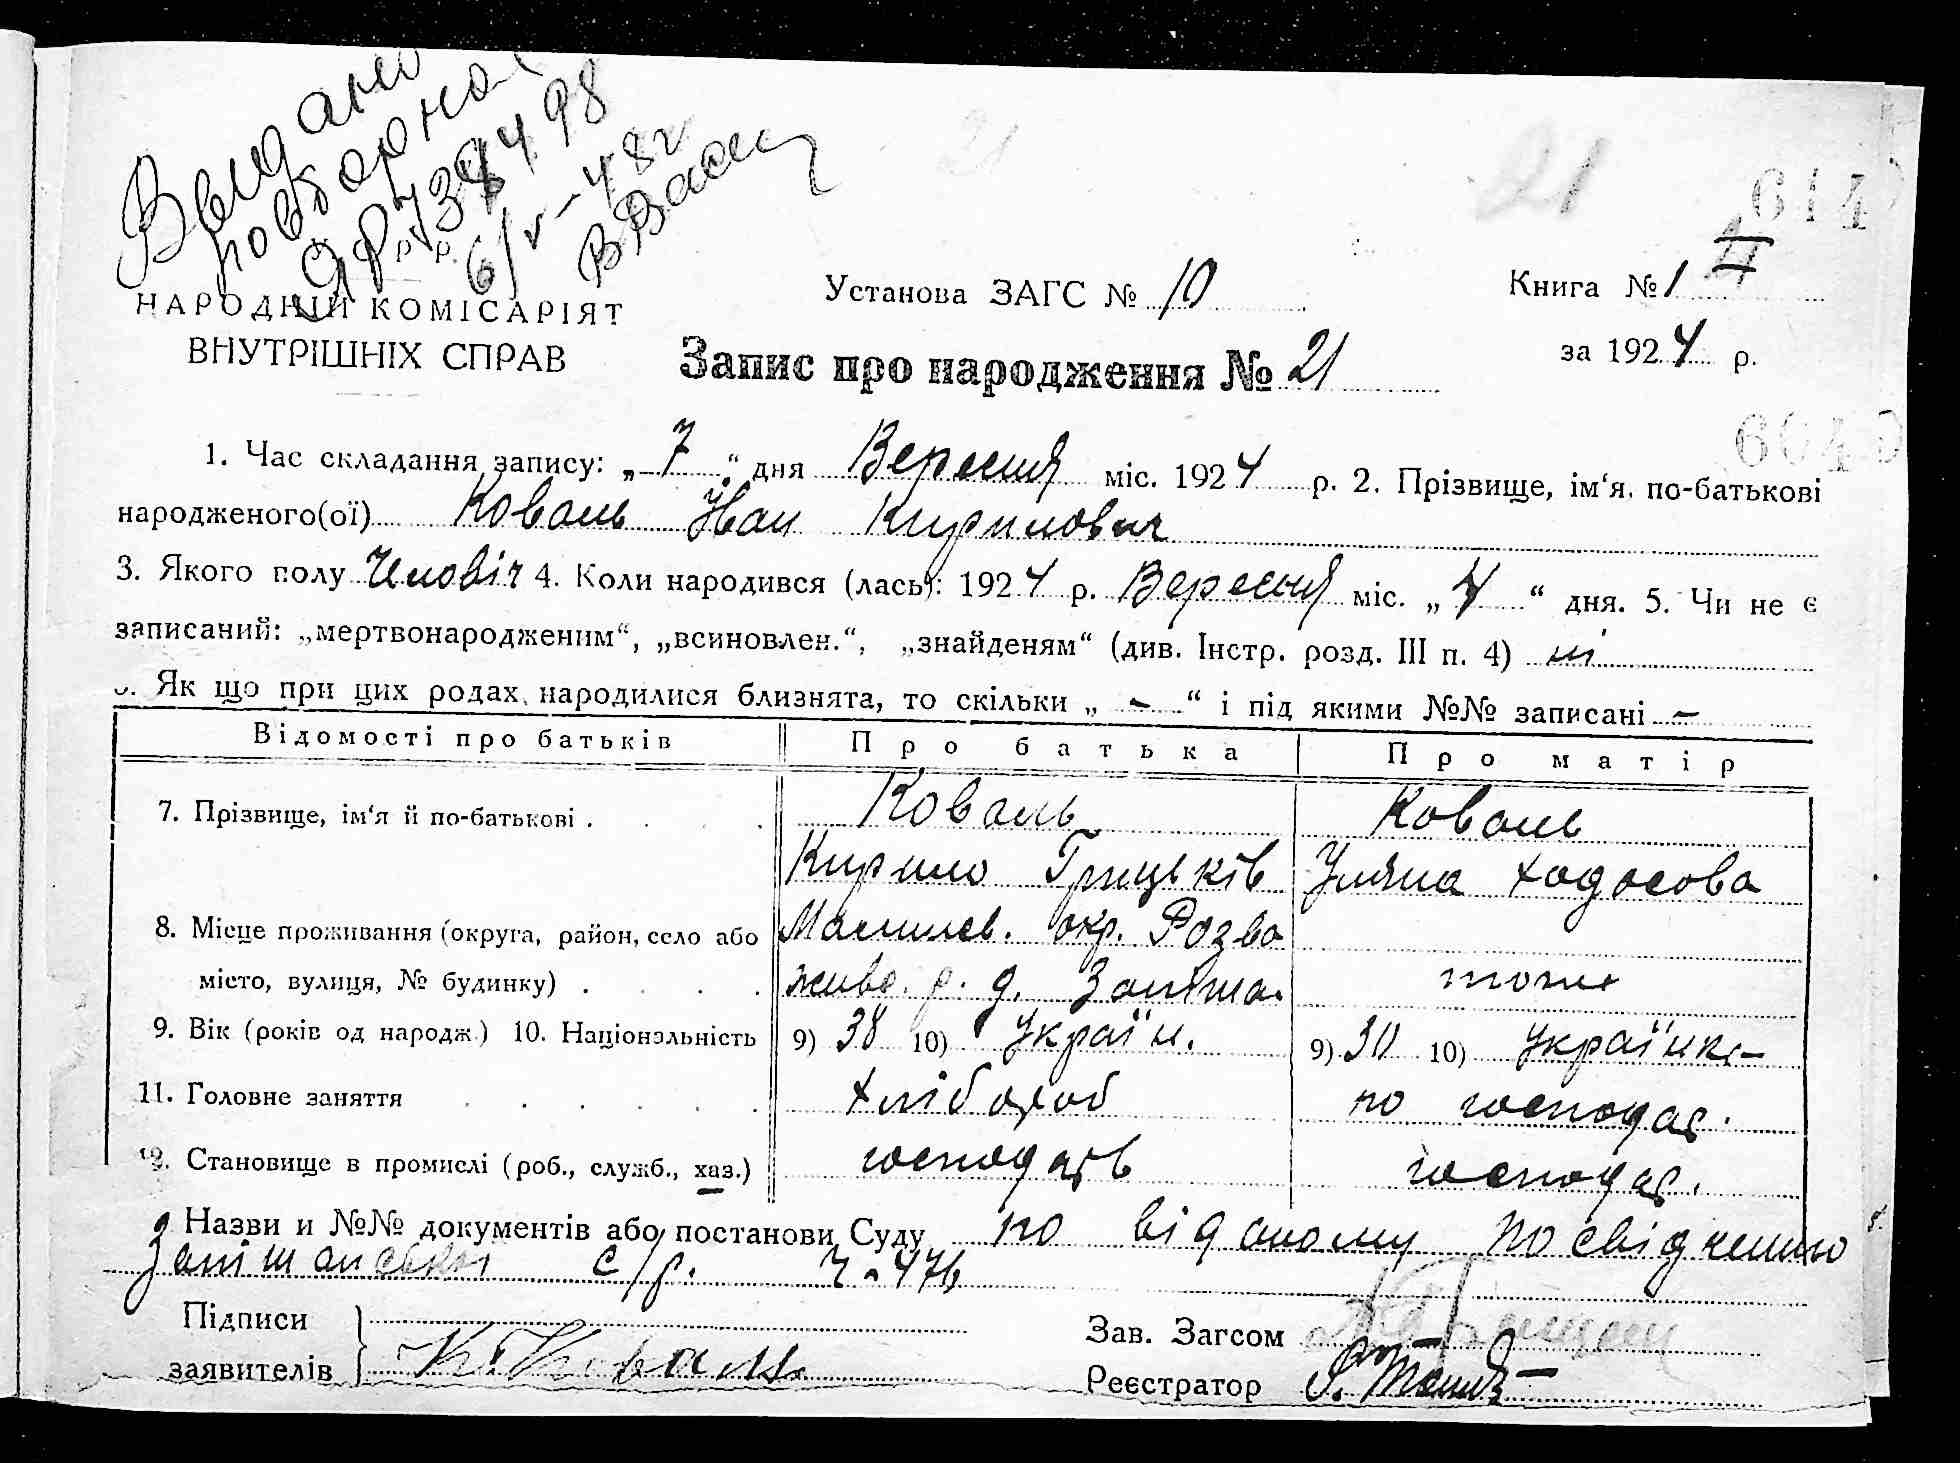 Выдано
повторно
6/V-48 г
21
21
614
Установа ЗАГС № 10
Книга № 1 II
НАРОДНІЙ КОМІСАРІЯТ
ВНУТРІШНІХ СПРАВ
Запис про народження № 21
за 1924 р.
6040
1. Час складання запису: „7“ дня Вересня міс. 1924 р. 2. Прізвище, ім‘я, по-батькові
народженого(ої) Коваль Іван Кирилович
3. Якого полу Чловіч 4. Коли народився (лась): 1924 р. Вересня міс. „4“ дня. 5. Чи не є
записаний: „мертвонародженим“, „всиновлен.“, „знайденям“ (див. Інстр. розд. III п. 4) ні
6. Як що при цих родах народилися близнята, то скільки „ - “ і під якими №№ записані -
Відомості про батьків Про батька Про матір
7. Прізвище, ім‘я й по-батькові . Коваль Коваль
Кирило Грицьків Уляна Ходосова
8. Місце проживання (округа, район, село або окр. Розва
місто, вулиця, № будинку) . жив. р. д. тоже
9. Вік (років од народж.) 10. Національність 9) 38 10) Україн. 9) 30 10) Українка
11. Головне заняття хлібороб по господар.
12. Становище в промислі (роб., служб., хаз.) господарь господар.
Назви и №№ документів або постанови Суду по віданому посвідченню
с/р. ч. 476
Підписи
заявителів К. Коваль
Зав. Загсом
Реєстратор